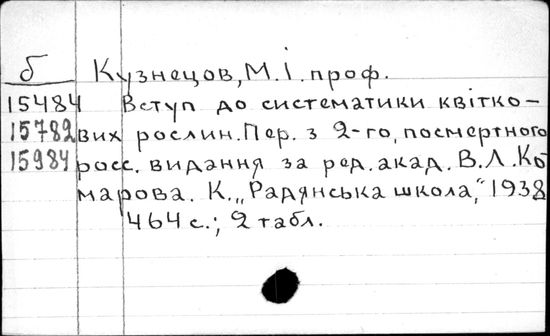 б Кузнецов, М.І. проф.
15484 Вступ до систематики квітко-
15782 вих рослин. Пер. з 2-го, посмертного
15984 росс. видання за ред. акад. В.Л. Ко
марова. К. „Радянська школа," 1938
464 с.; 2 табл.